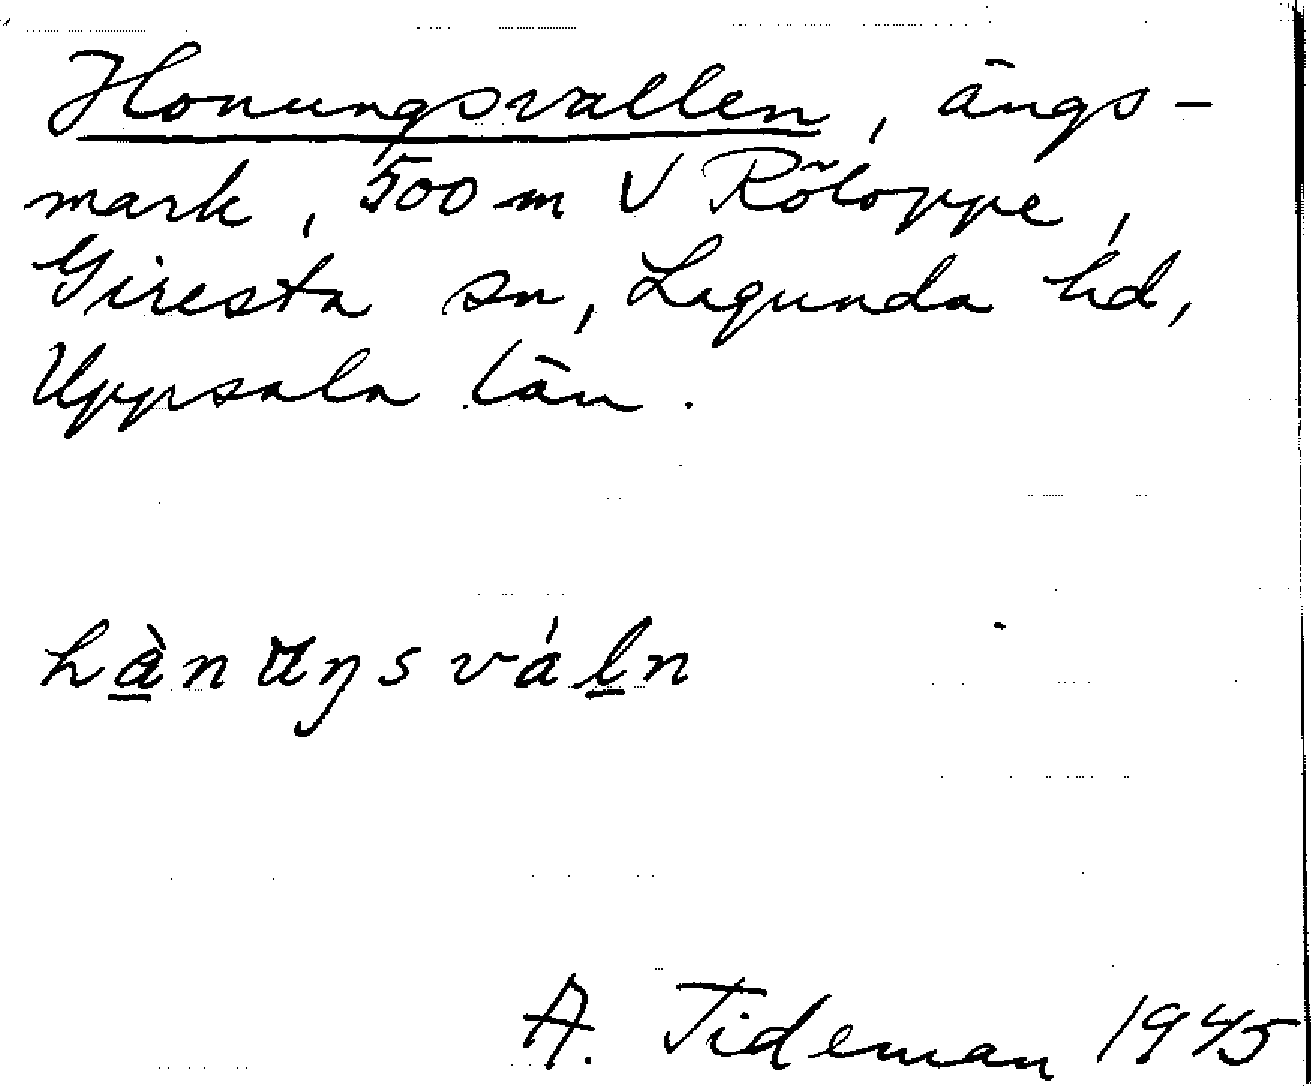 Honungsvallen, ängs-
mark, 500 m V Röloppe,
Giresta sn, Lagunda hd,
Uppsala län.
hà̱nʉŋsváḻn
A. Tideman 1945